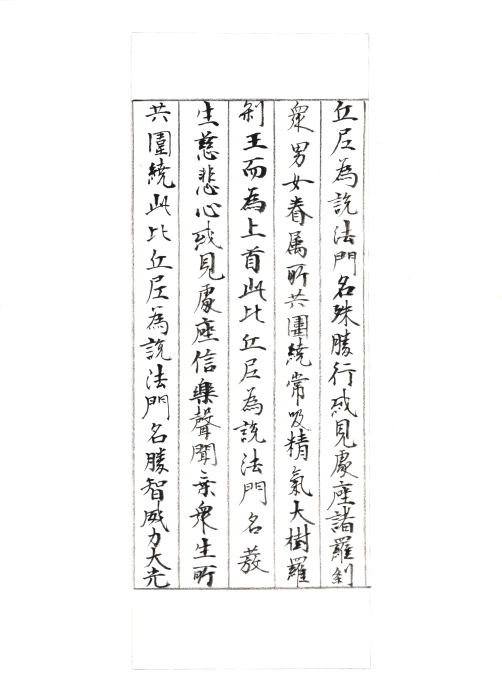 丘尼為說法門名殊勝行或見處座諸羅剎
眾男女眷属所共圍繞常吸精氣大樹羅
剎王而為上首此比丘尼為說法門名發
生慈悲心或見處座信樂聲聞乗眾生所
共圍繞此比丘尼為說法門名勝智威力大光